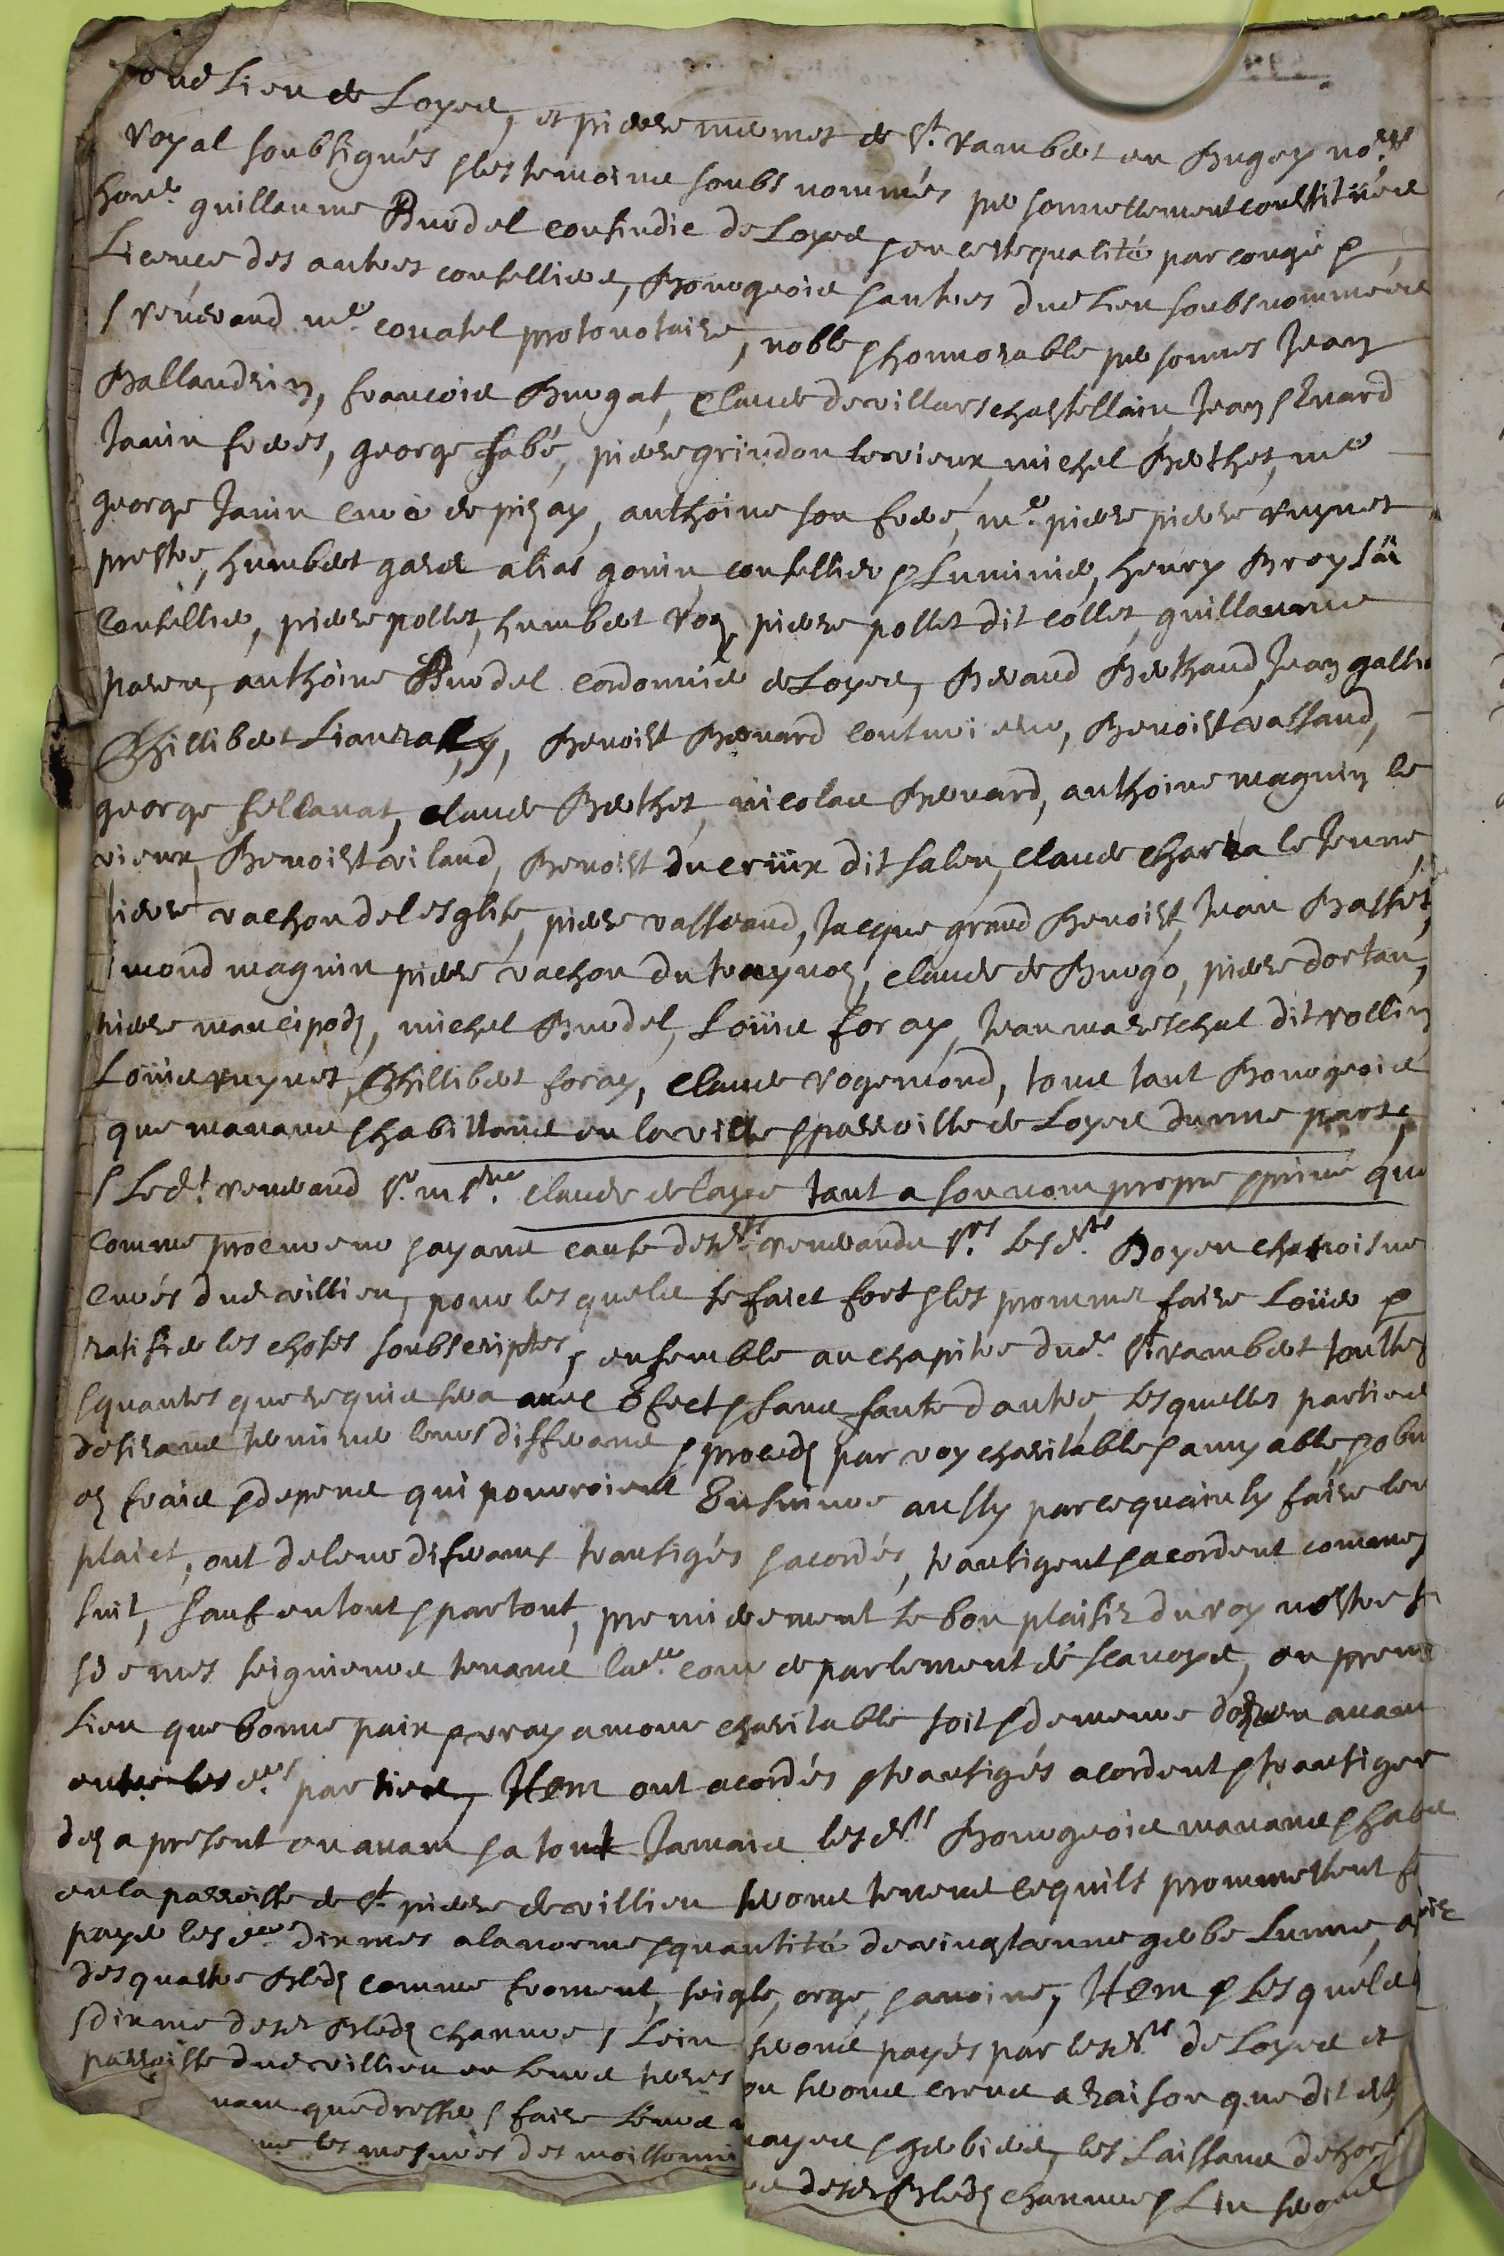 dud lieu de Loyes, et pierre mermet de St. rambert en Bugey no.res
royal soubsignés & les temoins soubs nommés personnellement constitués
hon.e guillaume Burdel consindic de Loyes & en ceste qualité par congé &
Licence des autres conselliers, Bourgeois & autres dud lieu soubsnommés
& révérand m.e conatel protonotaire, noble & honnorable personnes Jean
Ballandrin, francois Burgat, Claude de villars chastellain, Jean & Evrard
Janin freres, george fabé, pierre grindon le vieux, michel Berthet, m.e
george Janin curé de pizay, anthoine son frere, m.e pierre pierre ruynet
prestre, humbert gard alias gonin consellier & Luminié, henry Broysia
Consellier, pierre pollet, humbert roy, pierre pollet dit collet, guillaume
paren, anthoine Burdel cordonnier de Loyes, Berand Berthaud, Jean galli
Phillibert Lianra, Benoist Bernard couturiere, Benoist vassaud,
george sellavat, Claude Berthet, nicolas Bernard, anthoine magnin le
vieux, Benoist viland, Benoist ducriux dit salen, Claude charra le Jeune,
pierre vachon del esglise, pierre vasseraud, Jacque grand Benoist, Jean Basset,
mond magnin pierre vachon du traynoz, Claude de Burgo, pierre dortan,
pierre mancipoz, michel Burdel, Loüis foray, Jean mareschal dit rollin
Loüis ruynet, Phillibert foray, Claude rogemond, tous tant Bourgeois
que manans & habittans en la ville & parroisse de Loyes d'unne part,
& Led.t reverand Sr. m.re Claude de laye tant a son nom propre & privé que
comme procureur & ayans cause desd.ts reverands Srs. Lesd.ts Doyen chanoisne
Curés dud villieu, pour lesquels se faict fort & les prommet faire Loüer &
ratifier les choses soubscriptes, & ensemble au chapitre dud. St rambert touttes
& quantes que requis sera avec Efect & sans faute d'autre, Lesquelles parties
desirans terminer leurs differans & procedz par voy charitable & amyable & obvi
ez frais & depens qui pourroient Ensuivre aussy parce qu'ainsy faire leur
plaict, ont de leur diferans transigés & acordés, transigent & acordent comme
suit, sauf en tout & partout, premierement le bon plaisir du roy nostre s
& de mes seigneurs tenans lad.te cour de parlement de scavoye, en prem
Lieu que bonne paix & vray amour charitable soit & demeure dors en avant
entre les d.tes parties, Item ont acordés & transigés acordent & transigent
dez a present en avant & a tout Jamais lesd.ts Bourgeois manans & habit
en la parroisse de St. pierre de villieu seront tenus ce quils promnettent &
payer les d.ts dixmes a la norme & quantité de vingt & unne gerbe lunne, a
des quattre Bledz comme froment, seigle, orge, & avoine, Item & lesquels
& dixme desd Bledz chanvre & Lein seront payés par lesd.ts de Loyes et
parroisse dud villieu en Leurs terres ou seront creus a raison que dit est,
nam que dresser & faire Leurs rayes & gerbiers, les Laissans dehors
les mesures des moissonni desd Bledz chanvre & Lin seront